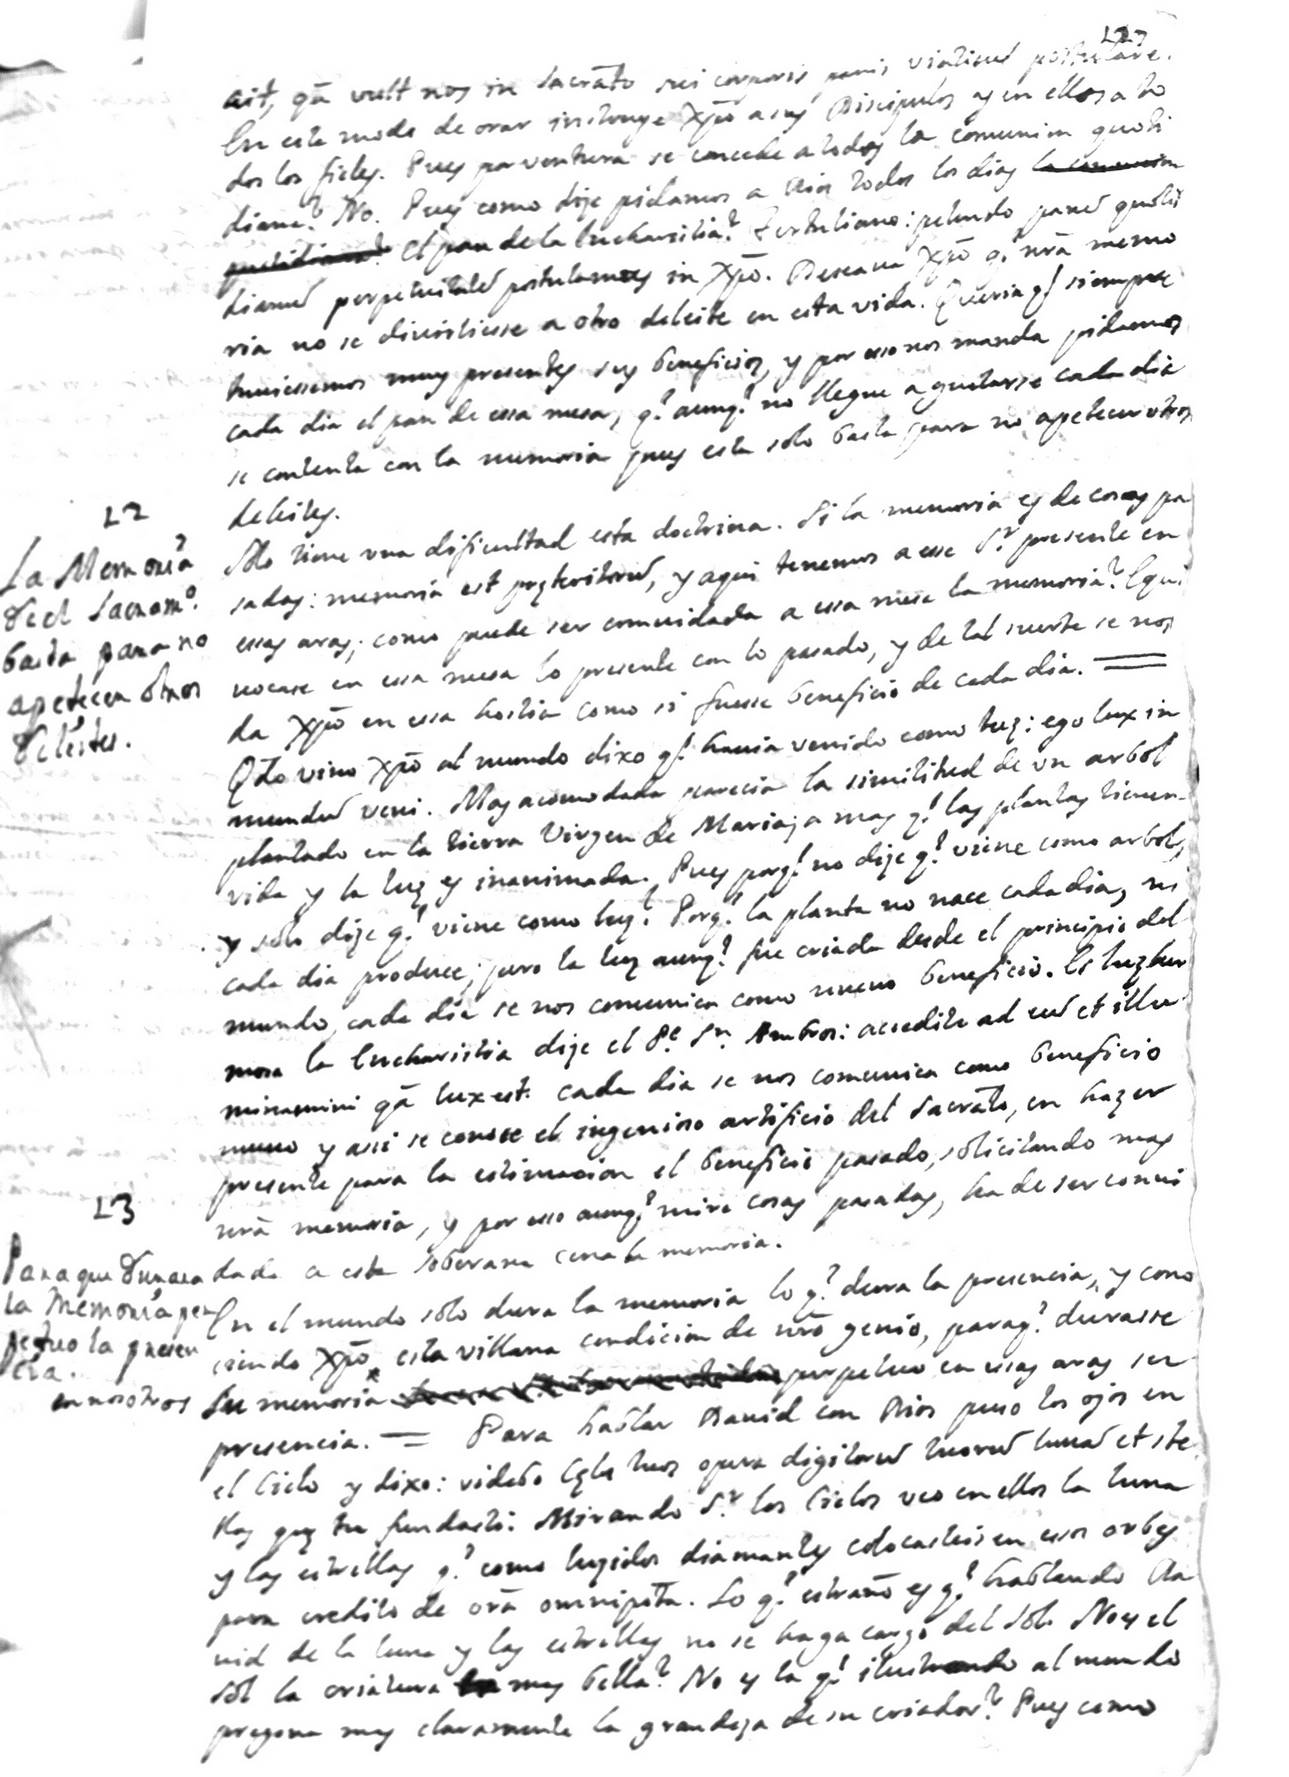 ait, qā vult nos in Sacrāto sui corporis panis viaticū postulare.
En este modo de orar instruye Xpō a sus Discipulos y en ellos a to
dos los fieles. Pues por ventura se concede a todos la comunion quoti
diana? No. Pues como dize pidamos a Dios todos los dias la comunion
quotidiana? el pan de la Eucharistia? Tertuliano: petendo panē quoti
dianū perpetuitatē postulamus in Xpō. Deseaua Xpō q.e nrā memo
ria no se diuirtiesse a otro deleite en esta vida. Queria q.e siempre
tuuiessemos muy presentes sus beneficios, y por esso nos manda pidamos
cada dia el pan de essa mesa, q.e aunq.e no llegue a gustarse cada dia
se contenta con la memoria pues esta solo basta para no apetecer otros
deleites.
22
La Memoria
de el Sacram.o
basta para no
apetecer otros
deleites.
Solo tiene vna dificultad esta doctrina. Si la memoria es de cosas pa
sadas: memoria est pręteritorū, y aqui tenemos a esse S.r presente en
essas aras; como puede ser comuidada a essa mesa la memoria? Equi
uocase en essa mesa lo presente con lo pasado, y de tal suerte se nos
da Xpō en essa hostia como si fuesse beneficio de cada dia. =
Qdo vino Xpō al mundo dixo q.e hauia venido como luz: ego lux in
mundū veni. Mas acomodada parecia la similitud de vn arbol
plantado en la tierra Virgen de Maria; a mas q.e las plantas tienen
vida y la luz es inanimada. Pues porq.e no dize q.e viene como arbol,
y solo dize q.e viene como luz? Porq.e la planta no nace cada dia, ni
cada dia produce; pero la luz aunq.e fue criada desde el principio del
mundo, cada dia se nos comunica como nueuo beneficio. Es luz her
mosa la Eucharistia dize el P.e S.n Ambros: accedite ad eū et illu
minamini qā lux est. cada dia se nos comunica como beneficio
nueuo y assi se conoce el ingenioso artificio del Sacrāto, en hazer
presente para la estimacion el beneficio pasado, solicitando mas
nrā memoria, y por esso aunq.e mire cosas pasadas, ha de ser conui
dada a esta soberana cena la memoria.
23
Para que durara
la Memoria per
petuo la presen
cia.
en nosotros
En el mundo solo dura la memoria lo q.e dura la presencia, y cono
ciendo Xpō esta villana condicion de nrō genio, paraq.e durasse
su memoria perpetuo en essas aras su
presencia. = Para hablar Dauid con Dios puso los ojos en
el Cielo y dixo: videbo cęlos tuos opera digitorū tuorū lunā et ste
llas quę tu fundasti. Mirando S.r los Cielos veo en ellos la luna
y las estrellas q.e como luzidos diamantes colocasteis en essos orbes
para credito de vrā omnipōta. Lo q.e estraño es q.e hablando Da
uid de la luna y las estrellas no se haga cargo del Sol. No es el
Sol la criatura mas bella? No es la q.e ilustrando al mundo
pregona mas claramente la grandeza de su criador? Pues como